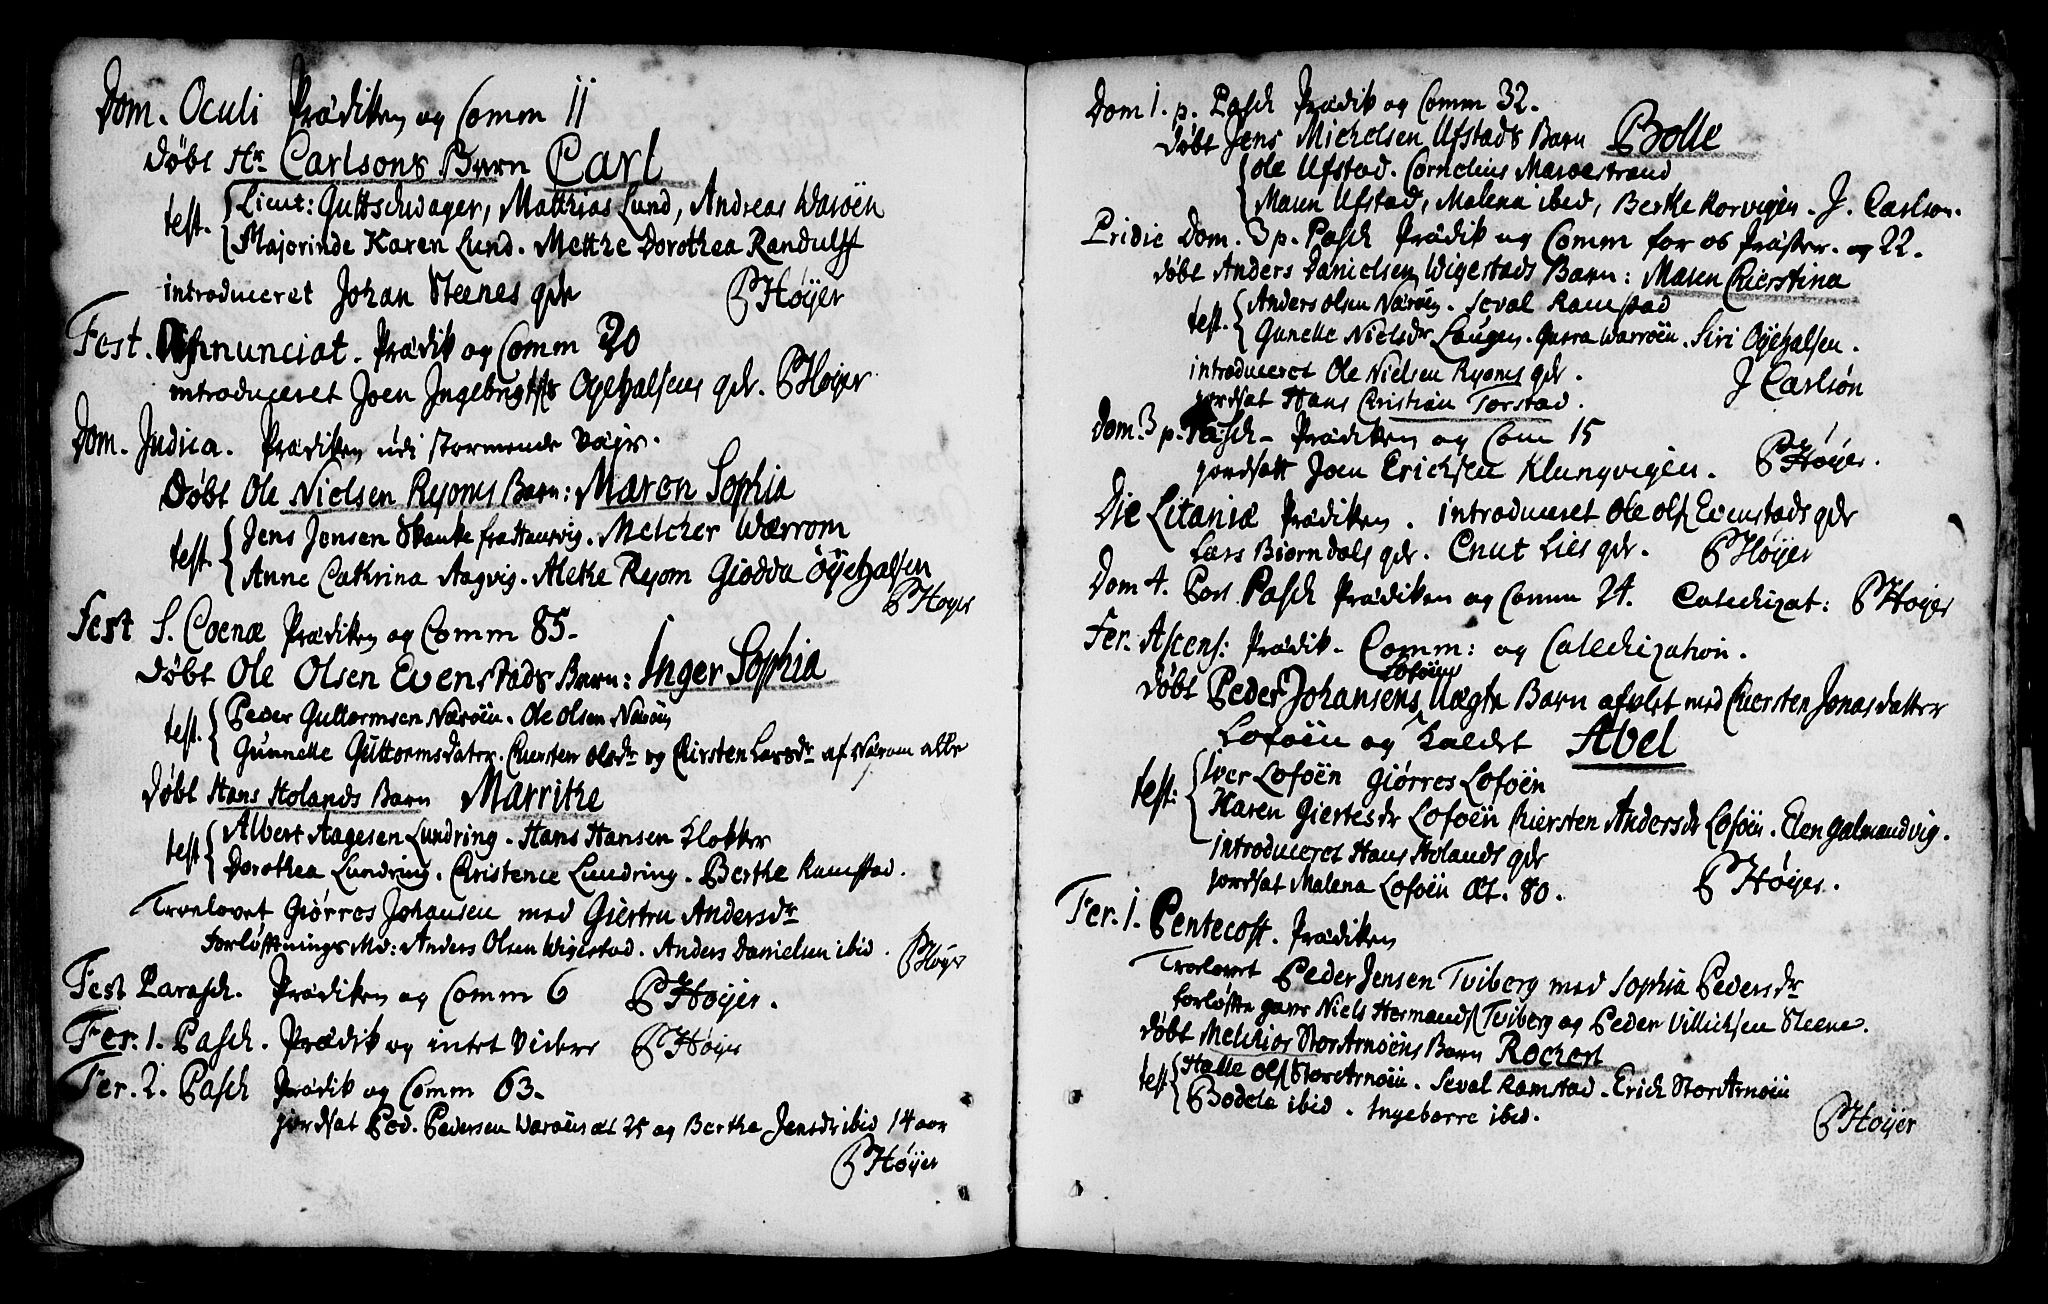 Dom. Oculi Prædiken og Comm 11
Døbt Hr Carlsons Barn Carl
test. Lieut: Guttschwager, Matthias Lund, Andreas Warøen
Majorinde Karen Lund. Mettke Dorothea Randulff
introduceret Johan Steenes qde
PHøyer
Fest. Annunciat. Prædik og Comm 20
introduceret Joen Ingebrigts Oyehalsens qde. PHøyer
Dom. Judica. Prædiken udi stormende Vajr.
Døbt Ole Nielsen Ryoms Barn: Maren Sophia
test. Jens Jensen Skanke fra Hansvig. Melcher Wærrom
Anne Cathrina Aagvig. Aleke Ryom Giødda Øyehalsen
PHøyer
Fest S. Coenæ Prædiken og Comm 85.
Døbt Ole Olsen Evenstads Barn: Inger Sophia
test. Peder Guttormsen Nærøen. Ole Olsen Nærøen
Gunnelle Guttormsdater. Chiersten Olsdr og Chirsten Larsdr af Nærøen alle
Døbt Hans Holands Barn Marrithe
test Albert Aagesen Lundring. Hans Hansen Klokker
Dorothea Lundring. Christence Lundring. Berthe Ramstad.
Troelovet Giørres Johansen med Giertru Andersdr
Forløftnings Md: Anders Olsen Wigestad. Anders Danielsen ibid. PHøyer
Fest Parasch. Prædiken og Comm 6 PHøyer.
Fer. 1. Pasch. Prædik og intet Videre PHøyer
Fer. 2. Pasch Prædik og Comm 63.
jordsat Ped. Pedersen Warøens æt 25 og Berthe Jensdr ibid 14 aar
PHøyer
Dom 1. p. Pasch Prædik og Comm 32.
Døbt Jens Michelsen Ufstads Barn Bolle
Ole Ufstad. Cornelius Marøestrand
Maren Ufstad, Malena ibid, Berthe Korvigen. J. Carlson.
Pridie Dom. 3 p. Pasch Prædik og Comm for os Præster. og 22.
Døbt Anders Danielsen Wigestads Barn: Maren Chierstina
test. Anders Olsen Nærøen. Seval Ramstad
Gunelle Nielsdr Laugen. Guora Warrøen. Siri Oyehalsen.
introduceret Ole Nielsen Ryoms qde.
jordsat Hans Christian Torstad. J Carlsøn
Dom. 3 p. Pasch. Prædiken og Com 15
jordsatt Joen Erichsen Klungvigen. PHøyer.
Die Litaniæ Prædiken. introduceret Ole Ols Evenstads qde
Lars Biørndals qde. Cnut Lies qde. PHøyer
Dom 4. Post Pasch Prædiken og Comm 24. Catechizat: PHøyer
Fer. Ascens: Prædik. Comm: og Catechization.
Døbt Peder Johansens Loføens Uægte Barn aflet med Chiersten Jonasdatter
Loføen og kaldet Abel
test: Iver Loføen Giørres Loføen
Karen Giertesdr Loføen Chiersten Andersdr Loføen. Elen Galmandvig.
introduceret Hans Holands qde
jordsat Malena Loføen Æt. 80. PHøyer.
Fer. 1. Pentecost. Prædiken
Troelovet Peder Jensen Tviberg med Sophia Pedersdr
forløfte gavr Niels Hermands Tviberg og Peder Villichsen Steene.
Døbt Melchior StorArnøens Barn Rochert
test Halle Ols StorArnøen. Seval Ramstad. Erich StorArnøen
Bodela ibid. Ingeborre ibid.
PHøyer